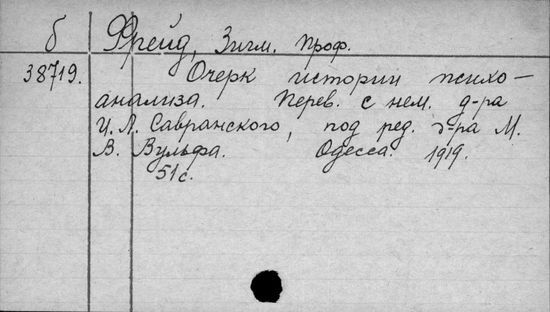 б Фрейд, Зигм. Проф.
38719. Очерк истории психо-
анализа. Перев. с нем. д-ра
И. Л. Савранского, под ред. д-ра М.
В. Вульфа. Одесса. 1919.
51 с.